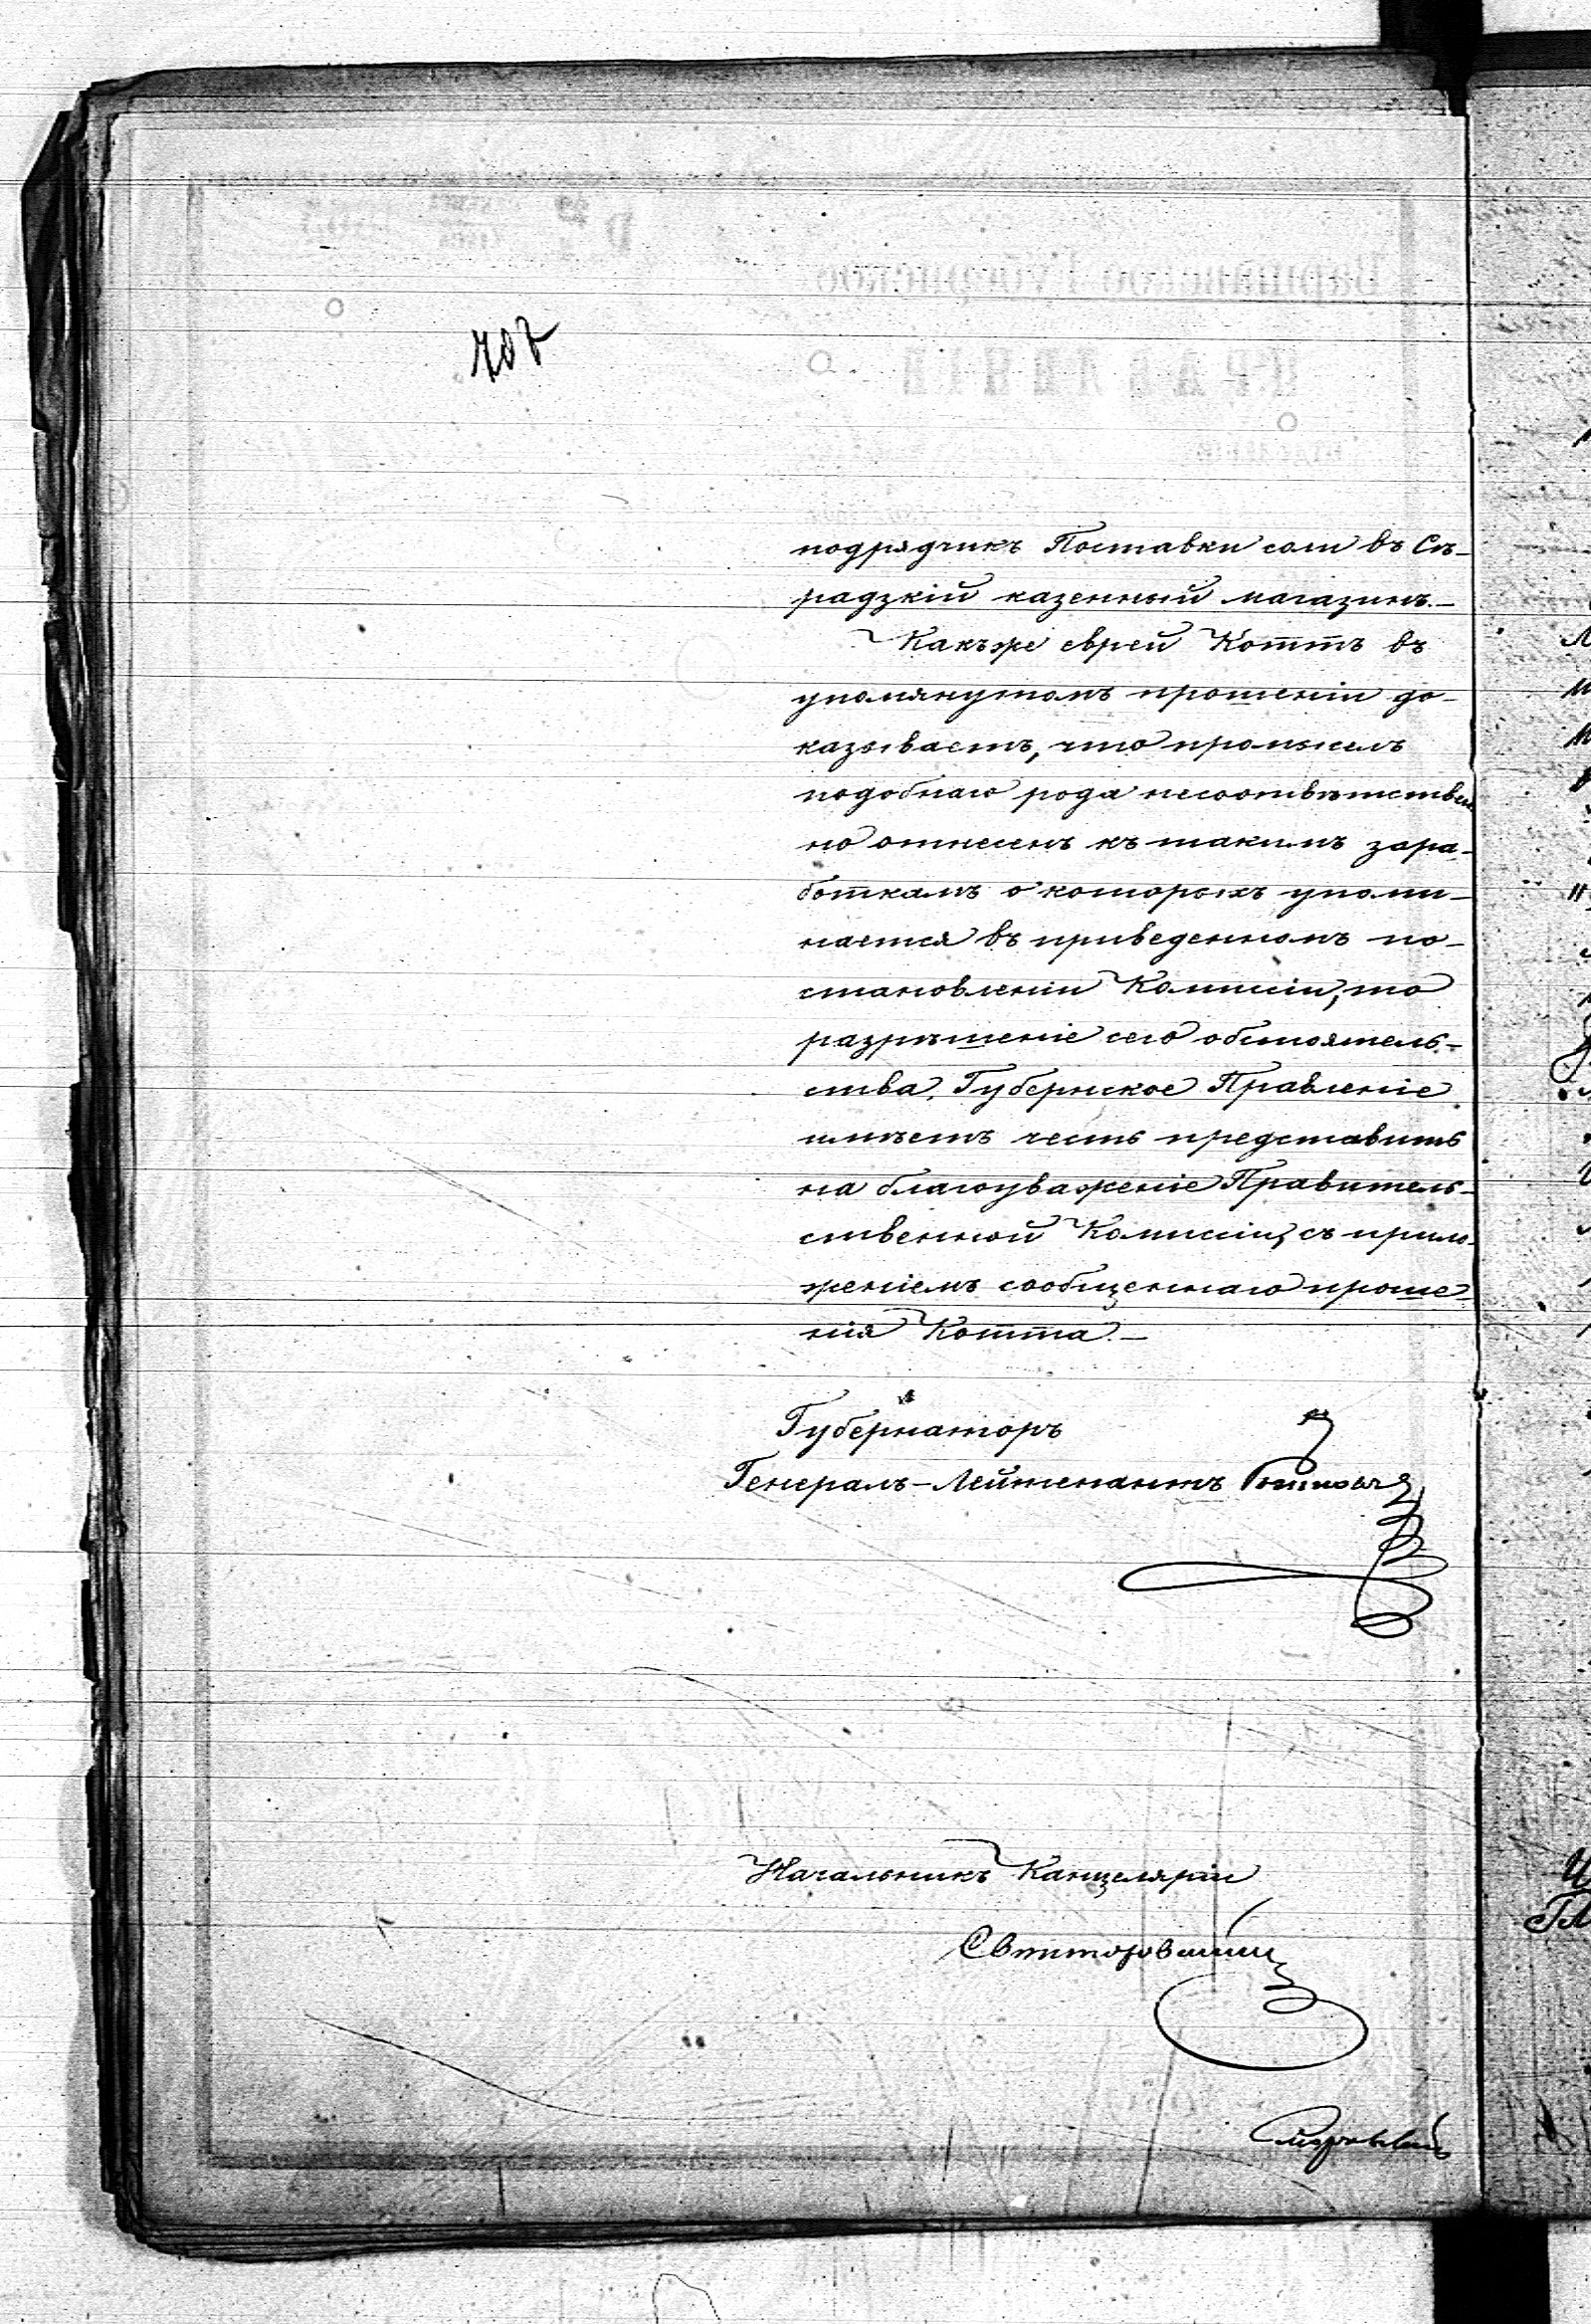 707
подрядчикъ Поставки соли въ Сѣ-
радзкій казенный магазинъ.—
Какъже еврей Коттъ въ
упомянутомъ прошеніи до-
казываетъ, что промыселъ
подобнаго рода несоотвѣтствен
но отнесенъ къ такимъ зара-
боткамъ о которыхъ упоми-
нается въ приведенномъ по-
становленіи Комисіи, то
разрѣшеніе сего обстоятель-
ства, Губернское Правленіе
имѣетъ честь представить
на благоуваженіе Правитель-
ственной Комисіи, съ прило-
женіемъ сообщеннаго проше-
нія Котта.—
Губернаторъ
Генералъ-Лейтенантъ
Начальникъ Канцеляріи